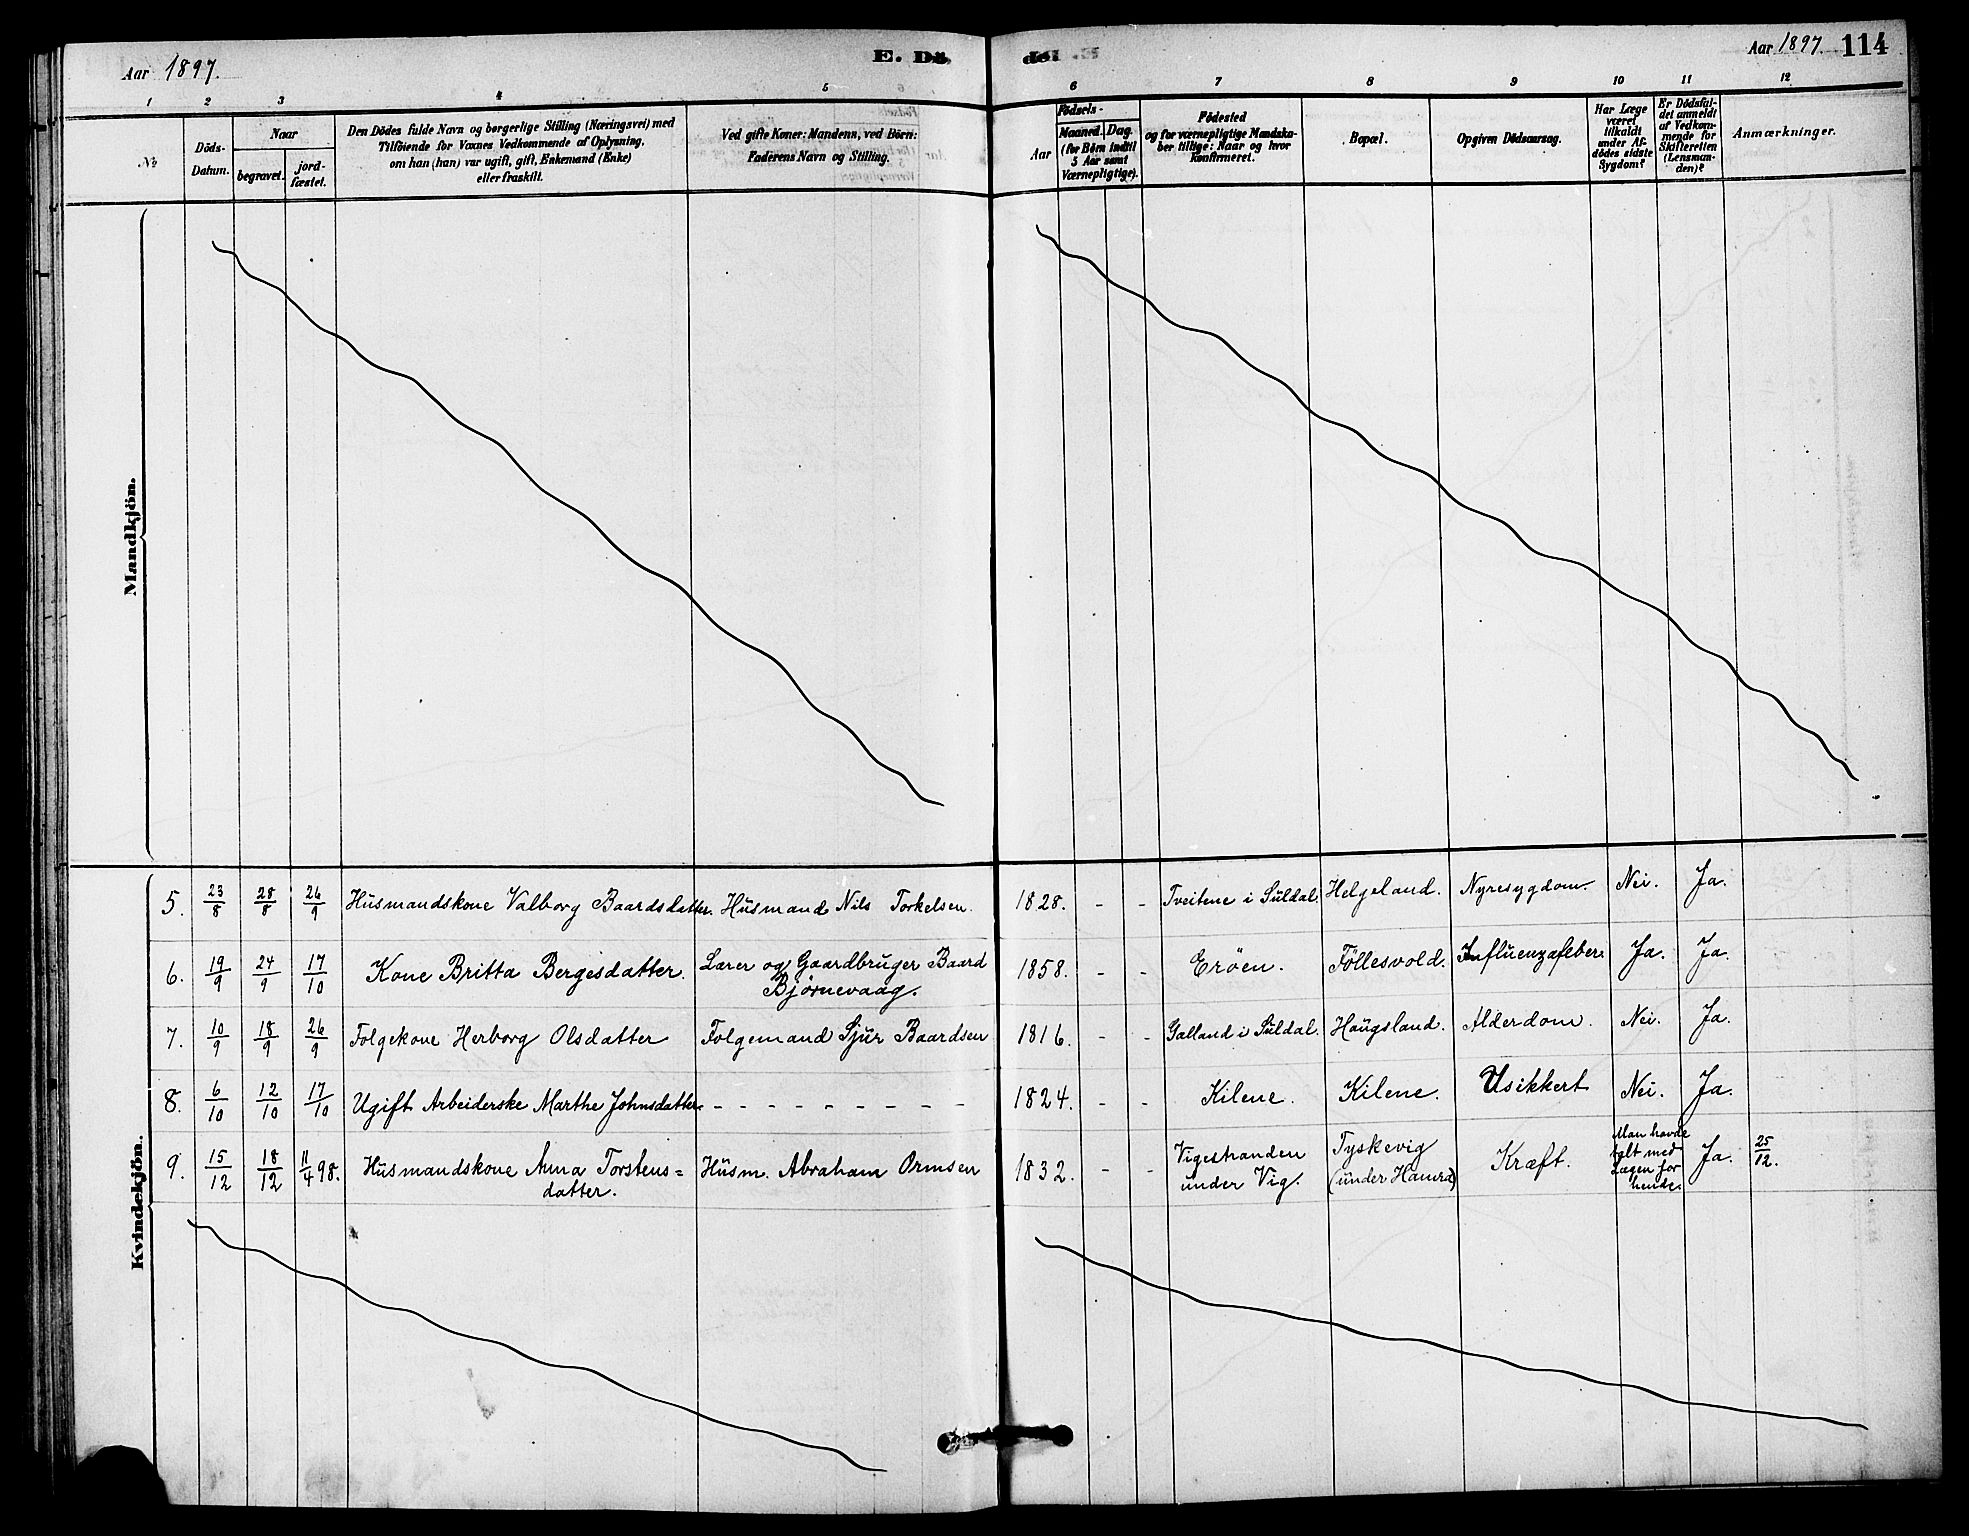 Aar 1897.
E. Dö
de. E.
Aar 1897. 114
1 2 3 4 5 6 7 8 9 10 11 12
№
Döds-
Datum.
Naar
begravet.
jord-
fæstet.
Den Dödes fulde Navn og borgerlige Stilling (Næringsvei) med
Tilföiende for Voxnes Vedkommende af Oplysning,
om han (hun) var ugift, gift, Enkemand (Enke)
eller fraskilt.
Ved gifte Koner: Mandens, ved Börn:
Faderens Navn og Stilling.
Födsels-
Aar
Maaned. Dag.
(for Börn indtil
5 Aar samt
Værnepligtige).
Födested
og for værnepligtige Mandska-
ber tillige: Naar og hvor
konfirmeret.
Bopæl.
Opgiven Dödsaarsag.
Har Læge
været
tilkaldt
under Af-
dödes sidste
Sygdom?
Er Dödsfal-
det anmeldt
af Vedkom-
mende for
Skifteretten
(Lensman-
den)?
Anmærkninger.
Mandkjön.
Kvindekjön.
5. 23/8 28/8 26/9 Husmandskone Valborg Baardsdatter. Husmand Nils Torkelsen. 1828. - - Tveitene i Suldal. Helgeland. Nyresygdom. Nei. Ja.
6. 19/9 24/9 17/10 Kone Britta Bergesdatter. Lærer og Gaardbruger Baard
Bjørnevaag. 1858. - - Erøen. Föllesvold. Influenzafeber. Ja. Ja.
7. 10/9 18/9 26/9 Folgekone Herborg Olsdatter Folgemand Sjur Baardsen 1816. - - Galland i Suldal. Haugsland. Alderdom. Nei. Ja.
8. 6/10 12/10 17/10 Ugift Arbeiderske Marthe Johnsdatter. - - - - - - - - - 1824. - - Kilene. Kilene. Usikkert Nei. Ja.
9. 15/12 18/12 11/4 98. Husmandskone Anna Torstens=
datter. Husm. Abraham Ormsen 1832. - - Vigestranden
under Vig. Tyskevig
(under Hamra) Kræft. Man havde
talt med
Lægen for
hende. Ja. 25/12.